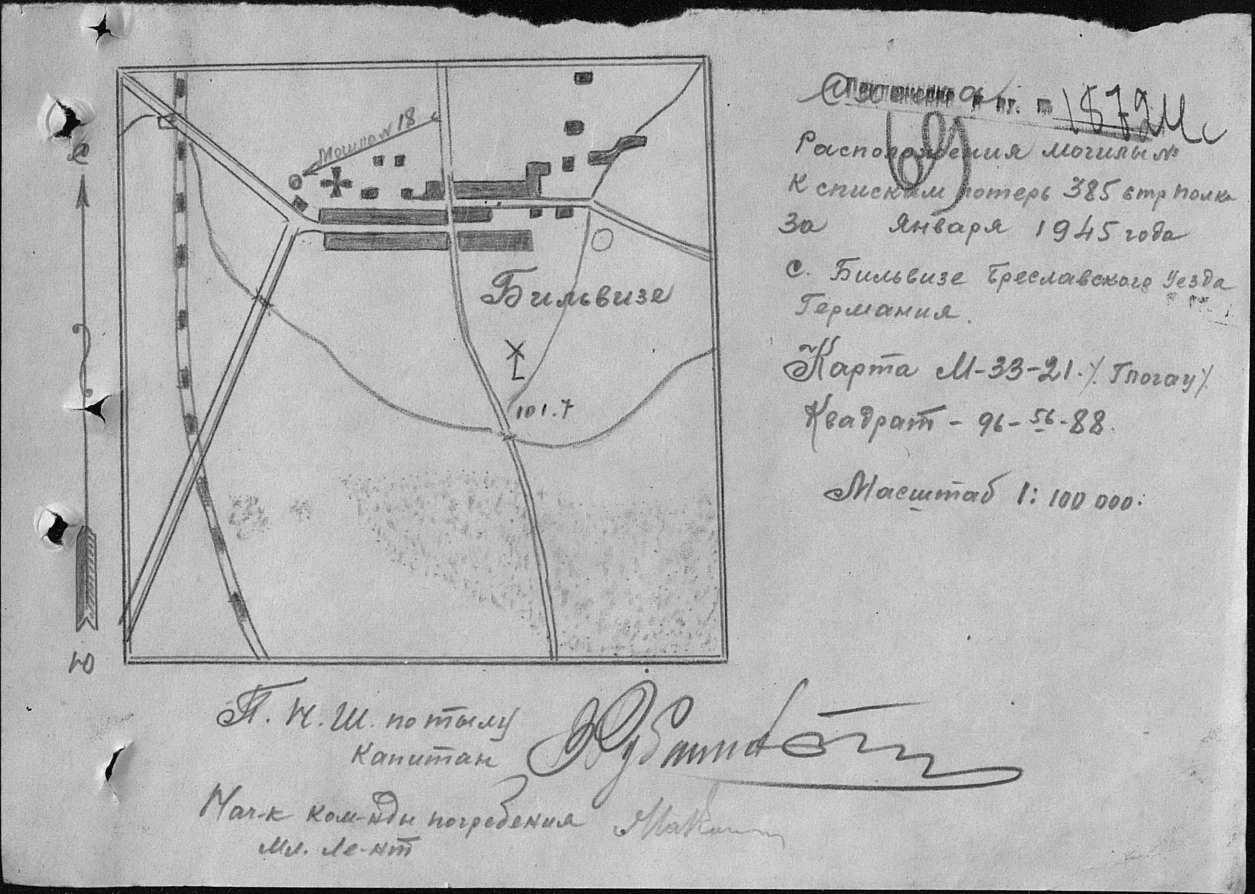 1872
С
Расположения могилы №
К спискам потерь 385 стр полка
За января 1945 года
с. Бильвизе Бреславского Уезда
Германия.
Карта М-33-21. /. Глогау /.
Квадрат - 96-56-88.
Масштаб 1: 100 000.
Могила № 18
Бильвизе
101.7
Ю
П. Н. Ш. по тылу
капитан
Нач-к ком-нды погребения
Мл. Ле-нт